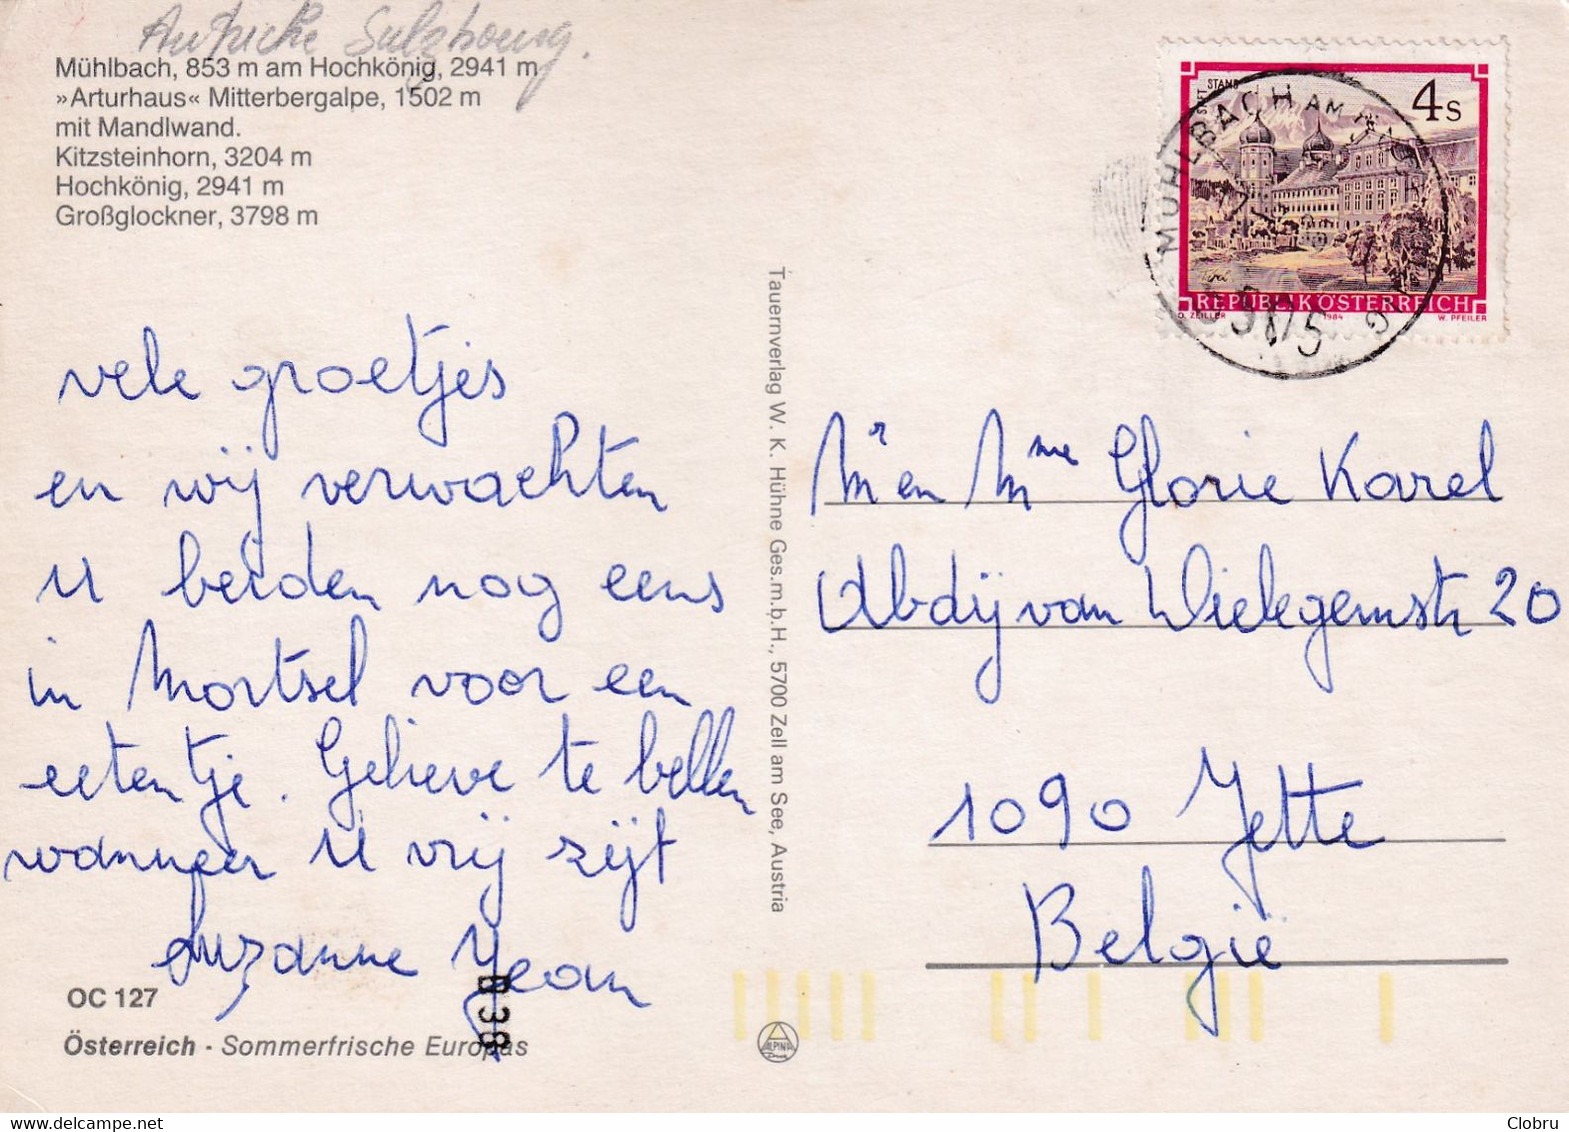 Mühlbach, 853 m am Hochkönig, 2941 m
»Arturhaus« Mitterbergalpe, 1502 m
mit Mandlwand.
Kitzsteinhorn, 3204 m
Hochkönig, 2941 m
Großglockner, 3798 m
vele groetjes
en wij verwachten
U beiden nog eens
in Mortsel voor een
etentje. Gelieve te bellen
wanneer U vrij zijt
Suzanne Jean
OC 127
Österreich · Sommerfrische Europas
038
Tauernverlag W. K. Hühne Ges.m.b.H., 5700 Zell am See, Austria
ALPINA
STIFT STAMS
4 S
REPUBLIK ÖSTERREICH
O. ZEILLER 1984 W. PFEILER
MÜHLBACH AM
Mr en Mme Glorie Karel
Abdij van Wielegemstr 20
1090 Jette
België
Clobru